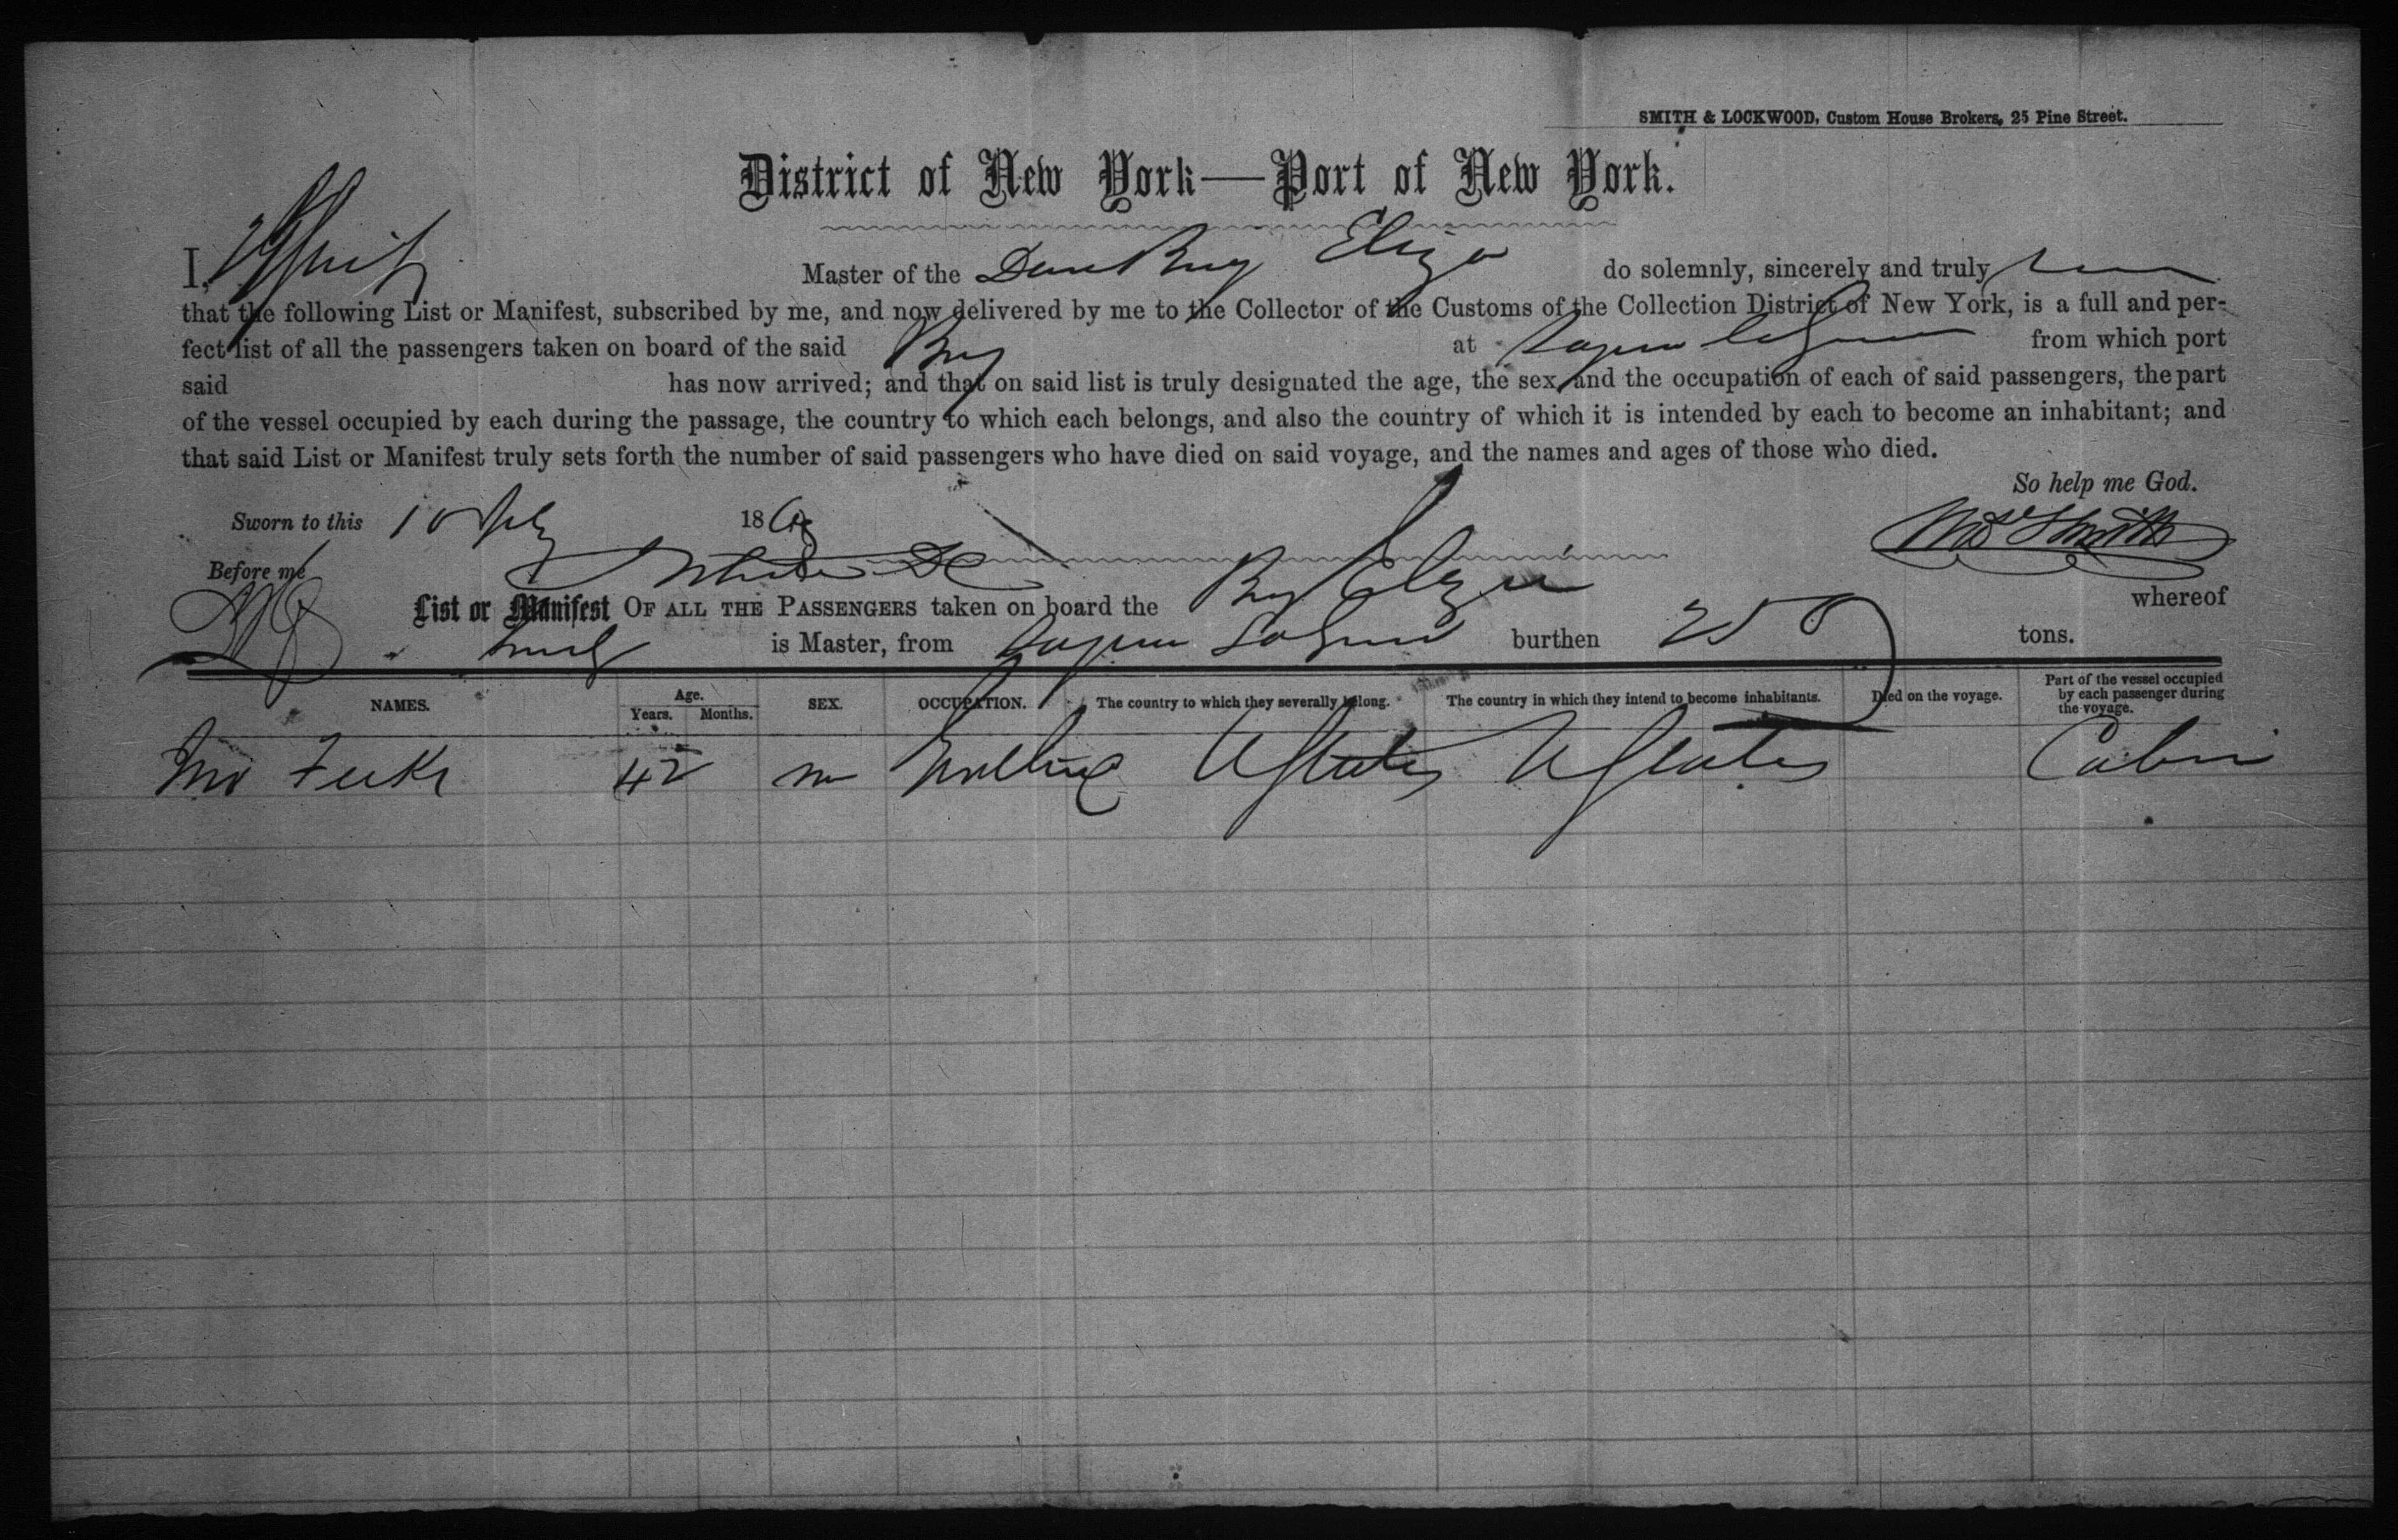 SMITH & LOCKWOOD, Custom House Brokers, 25 Pine Street.
District of New York—Port of New York.
I, Master of the Dan Brig Eliza do solemnly, sincerely and truly
that the following List or Manifest, subscribed by me, and now delivered by me to the Collector of the Customs of the Collection District of New York, is a full and per-
fect list of all the passengers taken on board of the said Brig at from which port
said has now arrived; and that on said list is truly designated the age, the sex and the occupation of each of said passengers, the part
of the vessel occupied by each during the passage, the country to which each belongs, and also the country of which it is intended by each to become an inhabitant; and
that said List or Manifest truly sets forth the number of said passengers who have died on said voyage, and the names and ages of those who died.
So help me God.
Sworn to this 10 186 Smith
Before me
List or Manifest OF ALL THE PASSENGERS taken on board the Brig Eliza whereof
is Master, from burthen 250 tons.
NAMES. Age. Years. Months. SEX. OCCUPATION. The country to which they severally belong. The country in which they intend to become inhabitants. Died on the voyage. Part of the vessel occupied by each passenger during the voyage.
42 m U States U States Cabin